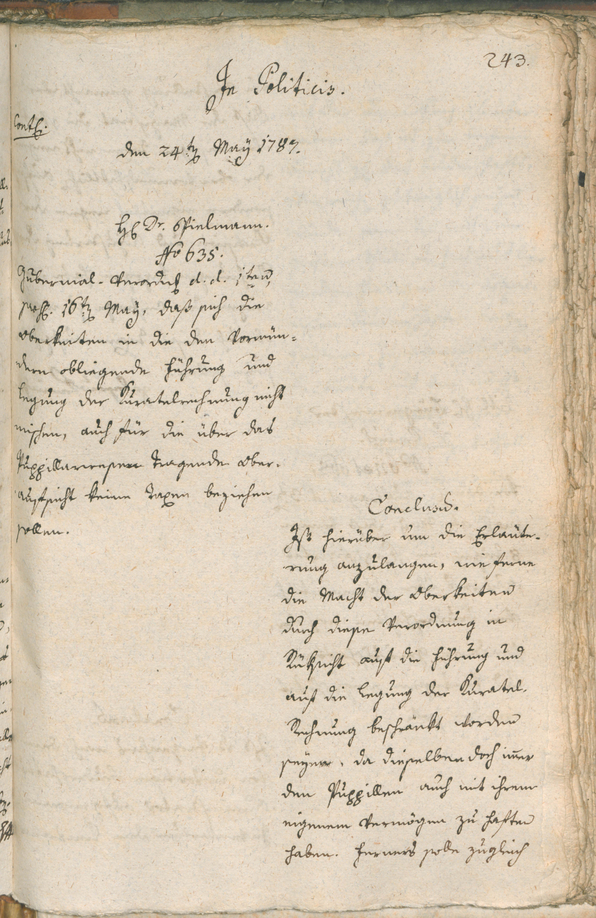 243.
In Politicis.
Conth:
den 24ten May 1787.
HE Dr. Spielmann.
No 635.
Gubernial-Verordng d. d. 1ten,
praes. 16ten May, daß sich die
Oberkeiten in die den Vormün=
dern obliegende Führung und
Legung der Kuratelrechnung nicht
mischen, auch für die über das
Puppillarwesen tragende Ober=
aufsicht keine Taxen beziehen
sollen.
Conclusum.
Ist hierüber um die Erläute=
rung anzulangen, wie ferne
die Macht der Oberkeiten
durch diese Verordnung in
Rüksicht auf die Führung und
auf die Legung der Kuratel=
Rechnung beschränkt worden
seyen, da dieselben doch im̅er
den Puppillen auch mit ihrem
eigenem Vermögen zu haften
haben. Ferners solle zugleich